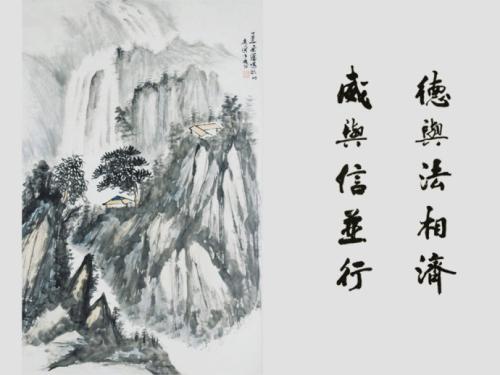 德與法相濟
威與信並行